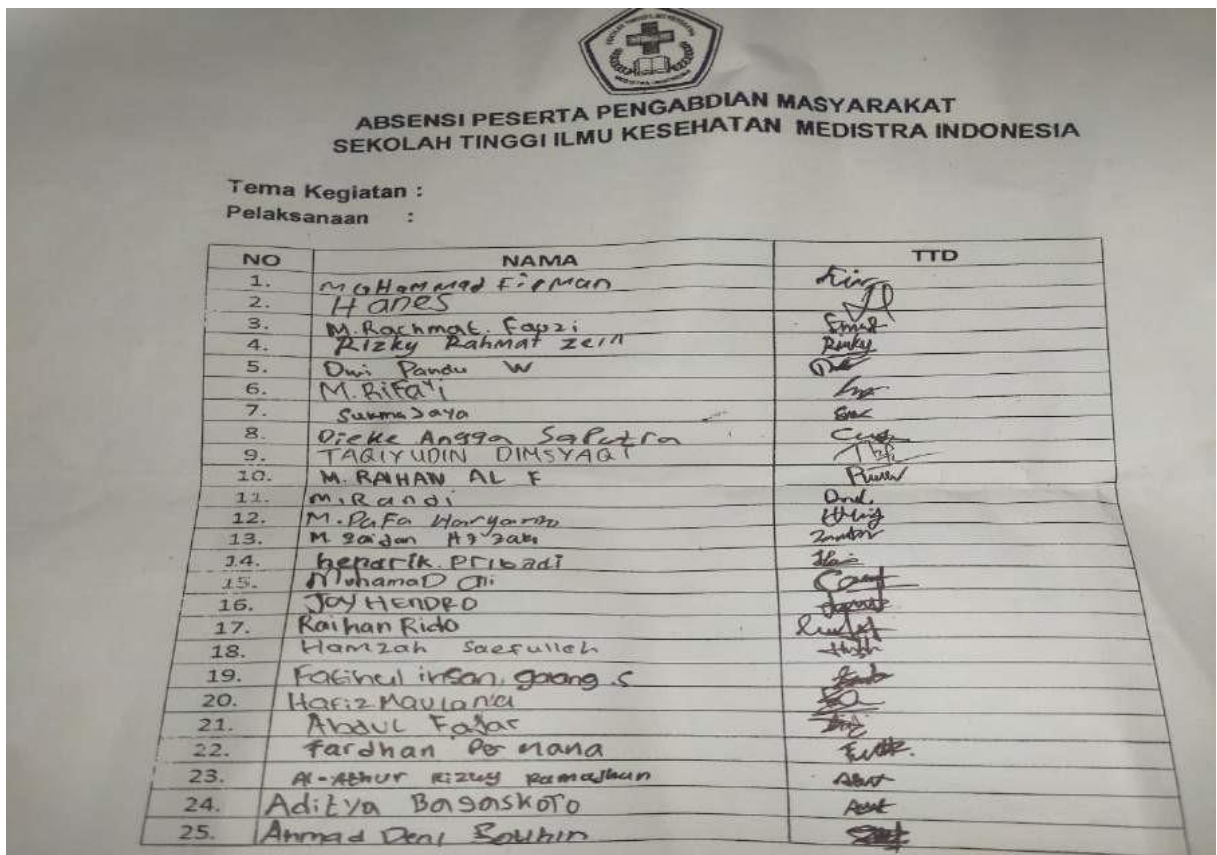 SEKOLAH TINGGI ILMU KESEHATAN
MEDISTRA INDONESIA
ABSENSI PESERTA PENGABDIAN MASYARAKAT
SEKOLAH TINGGI ILMU KESEHATAN MEDISTRA INDONESIA
Tema Kegiatan :
Pelaksanaan :
NO NAMA TTD
1. MOHammad Firman
2. Hanes
3. M. Rachmat. Fauzi
4. Rizky Rahmat zein Rizky
5. Dwi Pandu W
6. M. Rifa'i
7. Sukma Jaya
8. Dieke Angga Saputra
9. TAQIYUDIN DIMSYAQI
10. M. RAIHAN AL F
11. M. Randi
12. M. Dafa Haryanto
13. M
14. hendrik. Pribadi
15. MuhamaD Ali
16. JOY HENDRO
17. Raihan Rido
18. Hamzah Saefulloh
19. insan
20. Hafiz Maulana
21. Abdul Fajar
22. Fardhan Permana
23. Rizky Ramadhan
24. Aditya Bagaskoro
25. Ahmad Deni